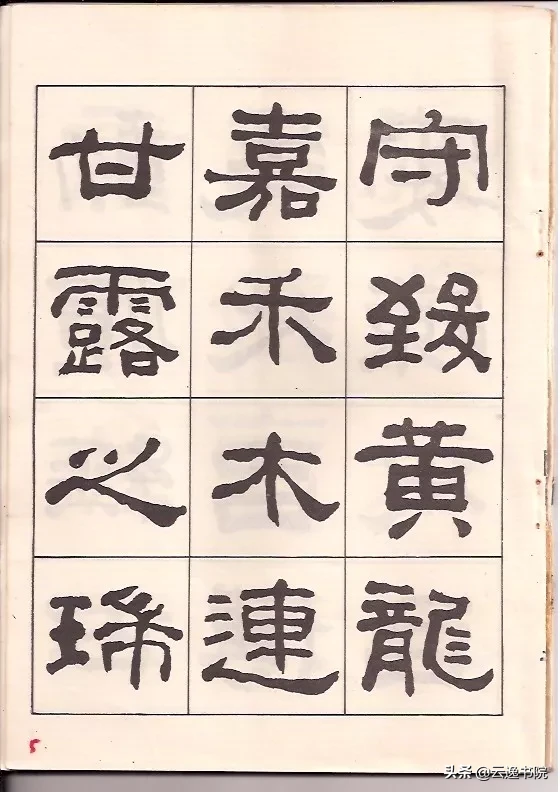 守致黄龍
嘉禾木連
甘露之瑞
5
头条 @云逸书院